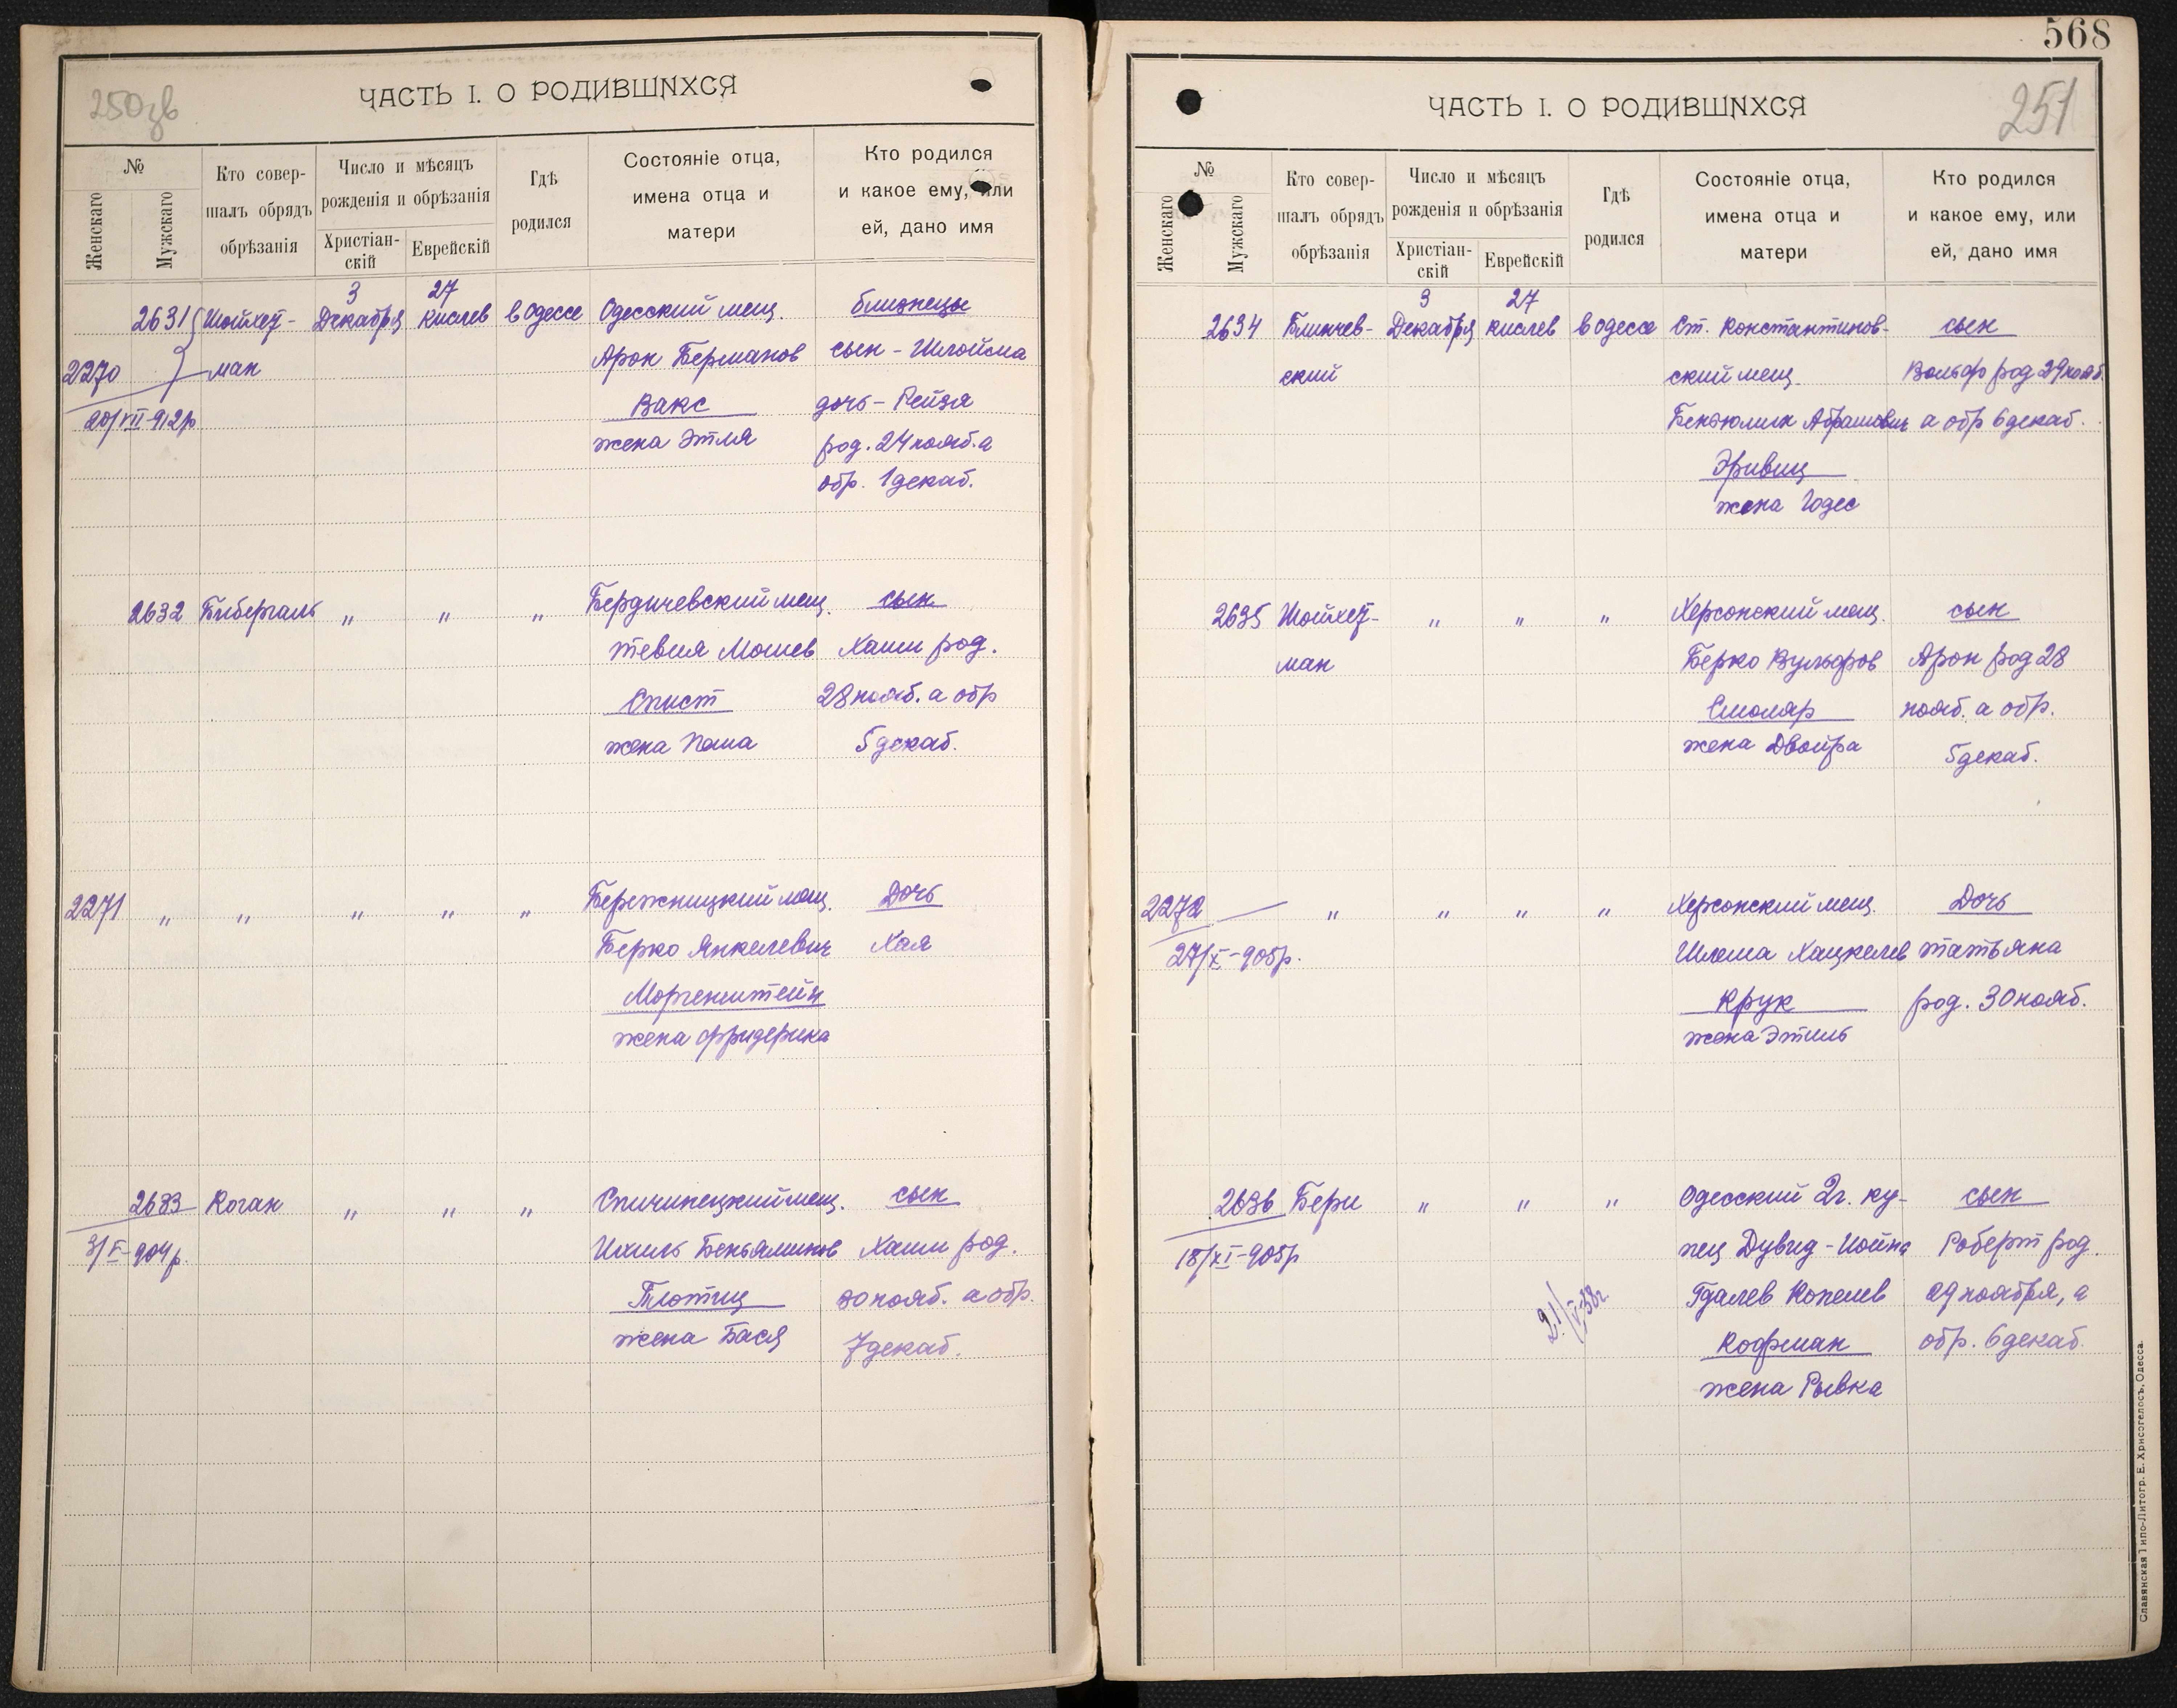 250зв
ЧАСТЬ I. О РОДИВШИХСЯ
№
Женскаго
Мужскаго
Кто совер-
шалъ обрядъ
обрѣзанія
Число и мѣсяцъ
рожденія и обрѣзанія
Христіан-
скій
Еврейскій
Гдѣ
родился
Состояніе отца,
имена отца и
матери
Кто родился
и какое ему, или
ей, дано имя
3 27
2631 Шойхет- Декабря кислев в Одессе Одесский мещ. близнецы
2270 ман Арон Берманов сын - Шлойма
20/VII-912р Вакс дочь - Рейзя
жена Этля род. 24 нояб. а
обр. 1 декаб.
2632 Бибергаль " " " Бердичевский мещ. сын
тевия Мошев Хаим род.
Спист 28 нояб. а обр
жена Пеша 5 декаб.
2271 " " " " " Бережницкий мещ. Дочь
Берко Янкелевич Хая
Моргенштейн
жена Фридерика
2633 Коган " " " Спичинецкий мещ. сын
3/V-904р. Ихиль Беньяминов Хаим род.
Плотиц 30 нояб. а обр.
жена Бася 7 декаб.
568
251
ЧАСТЬ I. О РОДИВШИХСЯ
№
Женскаго
Мужскаго
Кто совер-
шалъ обрядъ
обрѣзанія
Число и мѣсяцъ
рожденія и обрѣзанія
Христіан-
скій
Еврейскій
Гдѣ
родился
Состояніе отца,
имена отца и
матери
Кто родился
и какое ему, или
ей, дано имя
3 27
2634 Блинчев- Декабря кислев в одессе Ст. Константинов- сын
ский ский мещ. Вольф род 29 нояб.
Абрамович а обр 6 декаб.
Эривиц
жена Годес
2635 Шойхет- " " " Херсонский мещ. сын
ман Берко Вульфов Арон род 28
Смоляр нояб. а обр.
жена Двойра 5 декаб.
2272 " " " " Херсонский мещ. Дочь
27/X-905р. Шлема Хацкелев татьяна
Крук род. 30 нояб.
жена Этиль
2636 Бери " " " Одесский 2 г. ку- сын
18/XI-905р пец Дувид-Иойна Роберт род.
21/V-38г. Гдалев Копелев 29 ноября, а
Кофман обр. 6 декаб.
жена Рывка
Славянская Типо-Литогр. Е. Хрисогелосъ, Одесса.